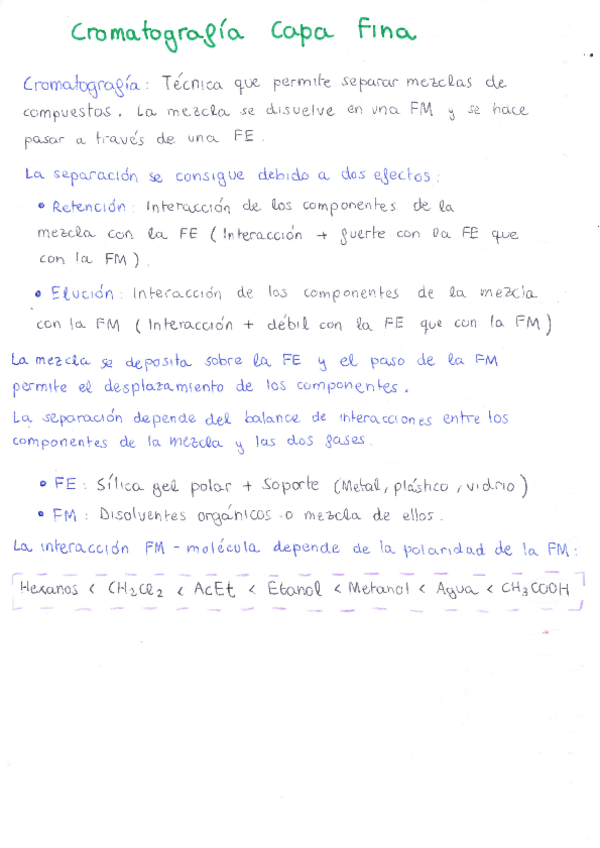 Cromatografía Capa Fina
Cromatografía: Técnica que permite separar mezclas de
compuestos. La mezcla se disuelve en una FM y se hace
pasar a través de una FE.
La separación se consigue debido a dos efectos:
• Retención: Interacción de los componentes de la
mezcla con la FE (Interacción + fuerte con la FE que
con la FM).
• Elución: Interacción de los componentes de la mezcla
con la FM (Interacción + débil con la FE que con la FM)
La mezcla se deposita sobre la FE y el paso de la FM
permite el desplazamiento de los componentes.
La separación depende del balance de interacciones entre los
componentes de la mezcla y las dos fases.
• FE: Sílica gel polar + Soporte (Metal, plástico, vidrio)
• FM: Disolventes orgánicos o mezcla de ellos.
La interacción FM - molécula depende de la polaridad de la FM:
Hexanos < CH2Cl2 < AcEt < Etanol < Metanol < Agua < CH3COOH